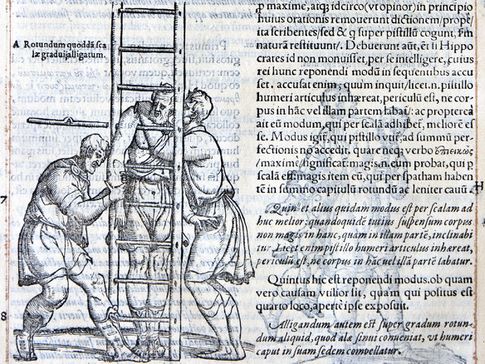 A Rotundum quoddã sca
læ gradui alligatum.
p maxime, atq; idcirco (vt opinor) in principio
huius orationis remouerunt dictionem/ prop/
ita scribentes/ sed & q̃ super pistillũ cogunt, ĩ m̃
naturã restituunt/. Debuerunt aũt, et ĩi Hippo
crates id non monuisset, per se intelligere, cuius
rei hunc reponendi modũ in sequentibus accu
set. accusat enim, quum inquit/ licet.n. pistillo
humeri articulus inhæreat, periculũ est, ne cor
pus in hãc vel illam partem labat/. ac propterea
ait eũ modum, q per scalã adhibet, meliorẽ es
se. Modus igit̃, qui pistillo vtit̃, ad summã per/
fectionis nõ accedit. quare neq; verbo
/maxime/ significat: magis.n. eum probat, qui p
scalã est. magis item eũ, qui per spatham haben
tẽ in summo capitulũ rotundũ ac leniter cauũ. H
Quin et alius quidam modus est per scalam ad
huc melior, quandoquidẽ tutius suspensum corpus
non magis in hanc, quam in illam partẽ, inclinabi
tur. Licet enim pistillo humeri articulus inhæreat,
periculũ est, ne corpus in hac uel illam partẽ labatur.
Quintus hic est reponendi modus. ob quam
vero causam vtilior sit, quam qui positus est
quarto loco, apertẽ ipse exposuit.
Alligandum autem est super gradum rotun
dum aliquid, quod ala sinui conueniat, vt humeri
caput in suam sedem compellatur.
7
8